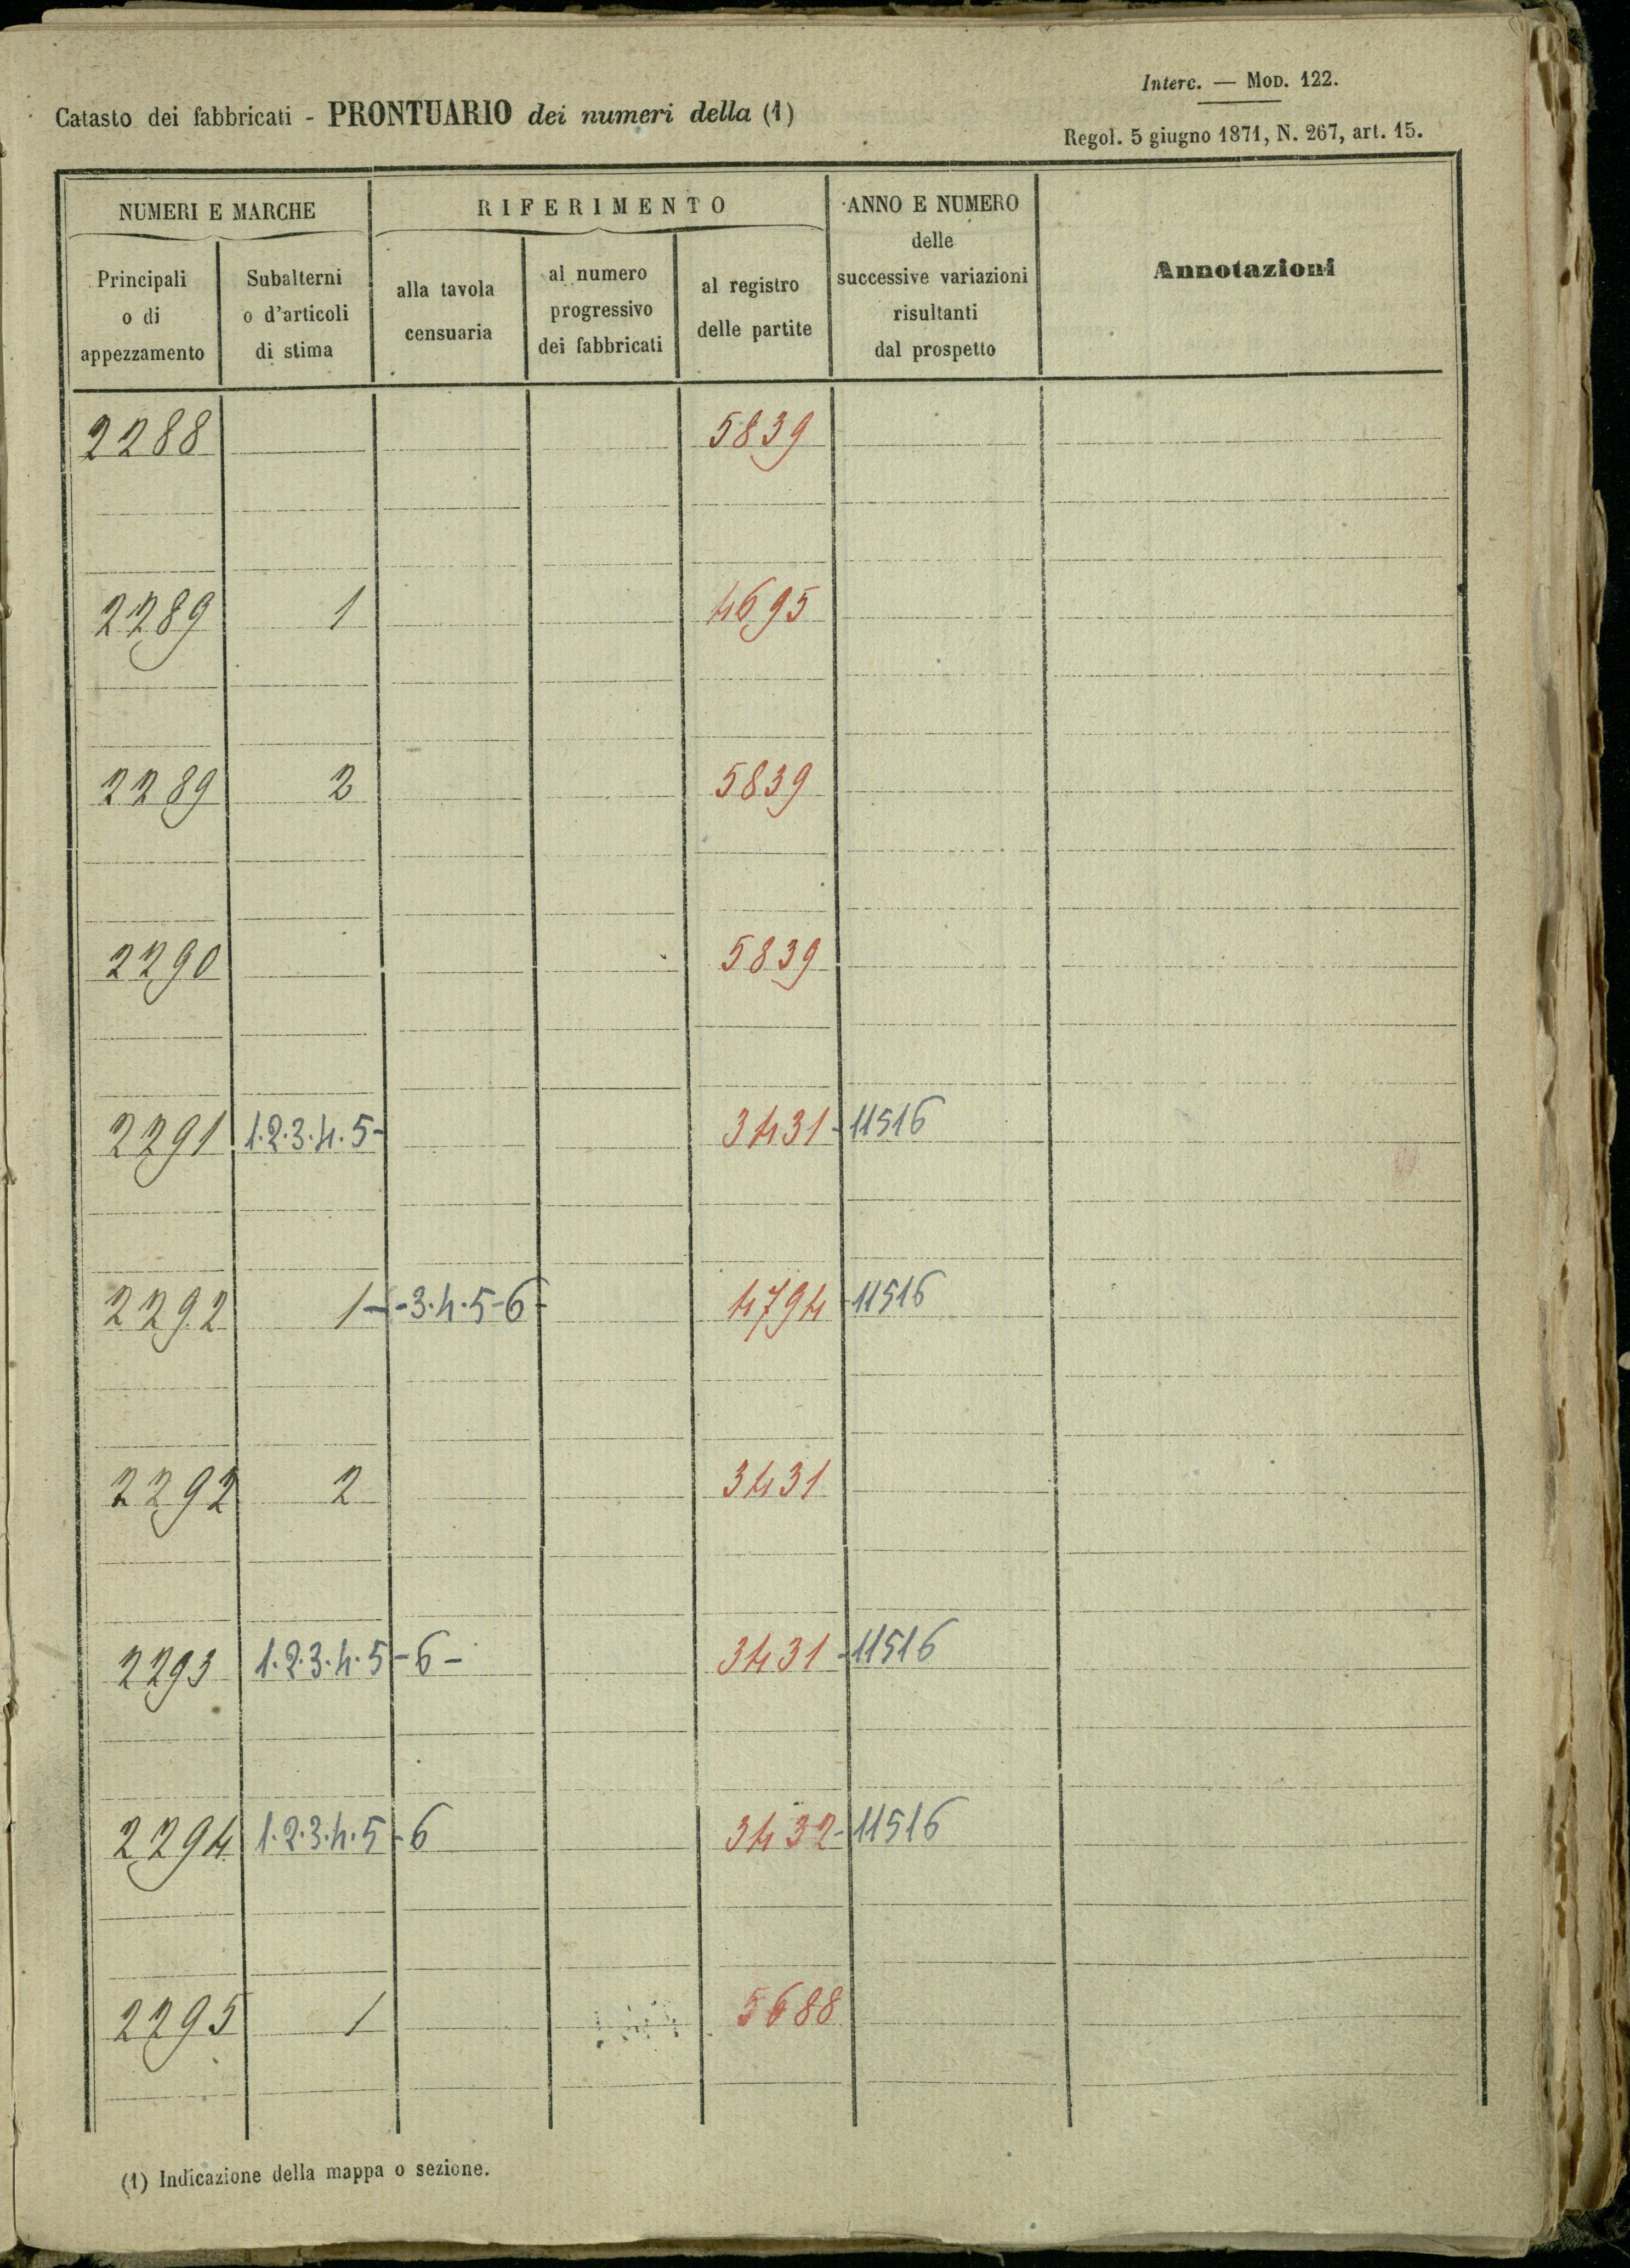 Interc. — MOD. 122.
Catasto dei fabbricati - PRONTUARIO dei numeri della (1)
Regol. 5 giugno 1871, N. 267, art. 15.
NUMERI E MARCHE
RIFERIMENTO
ANNO E NUMERO
delle
successive variazioni
risultanti
dal prospetto
Annotazioni
Principali
o di
appezzamento
Subalterni
o d'articoli
di stima
alla tavola
censuaria
al numero
progressivo
dei fabbricati
al registro
delle partite
2288 5839
2289 1 4695
2289 2 5839
2290 5839
2291 1.2.3.4.5- 3431-11516
2292 1--3.4.5-6- 4794-11516
2292 2 3431
2293 1.2.3.4.5-6- 3431-11516
2294 1.2.3.4.5-6 3432-11516
2295 1 5688
(1) Indicazione della mappa o sezione.